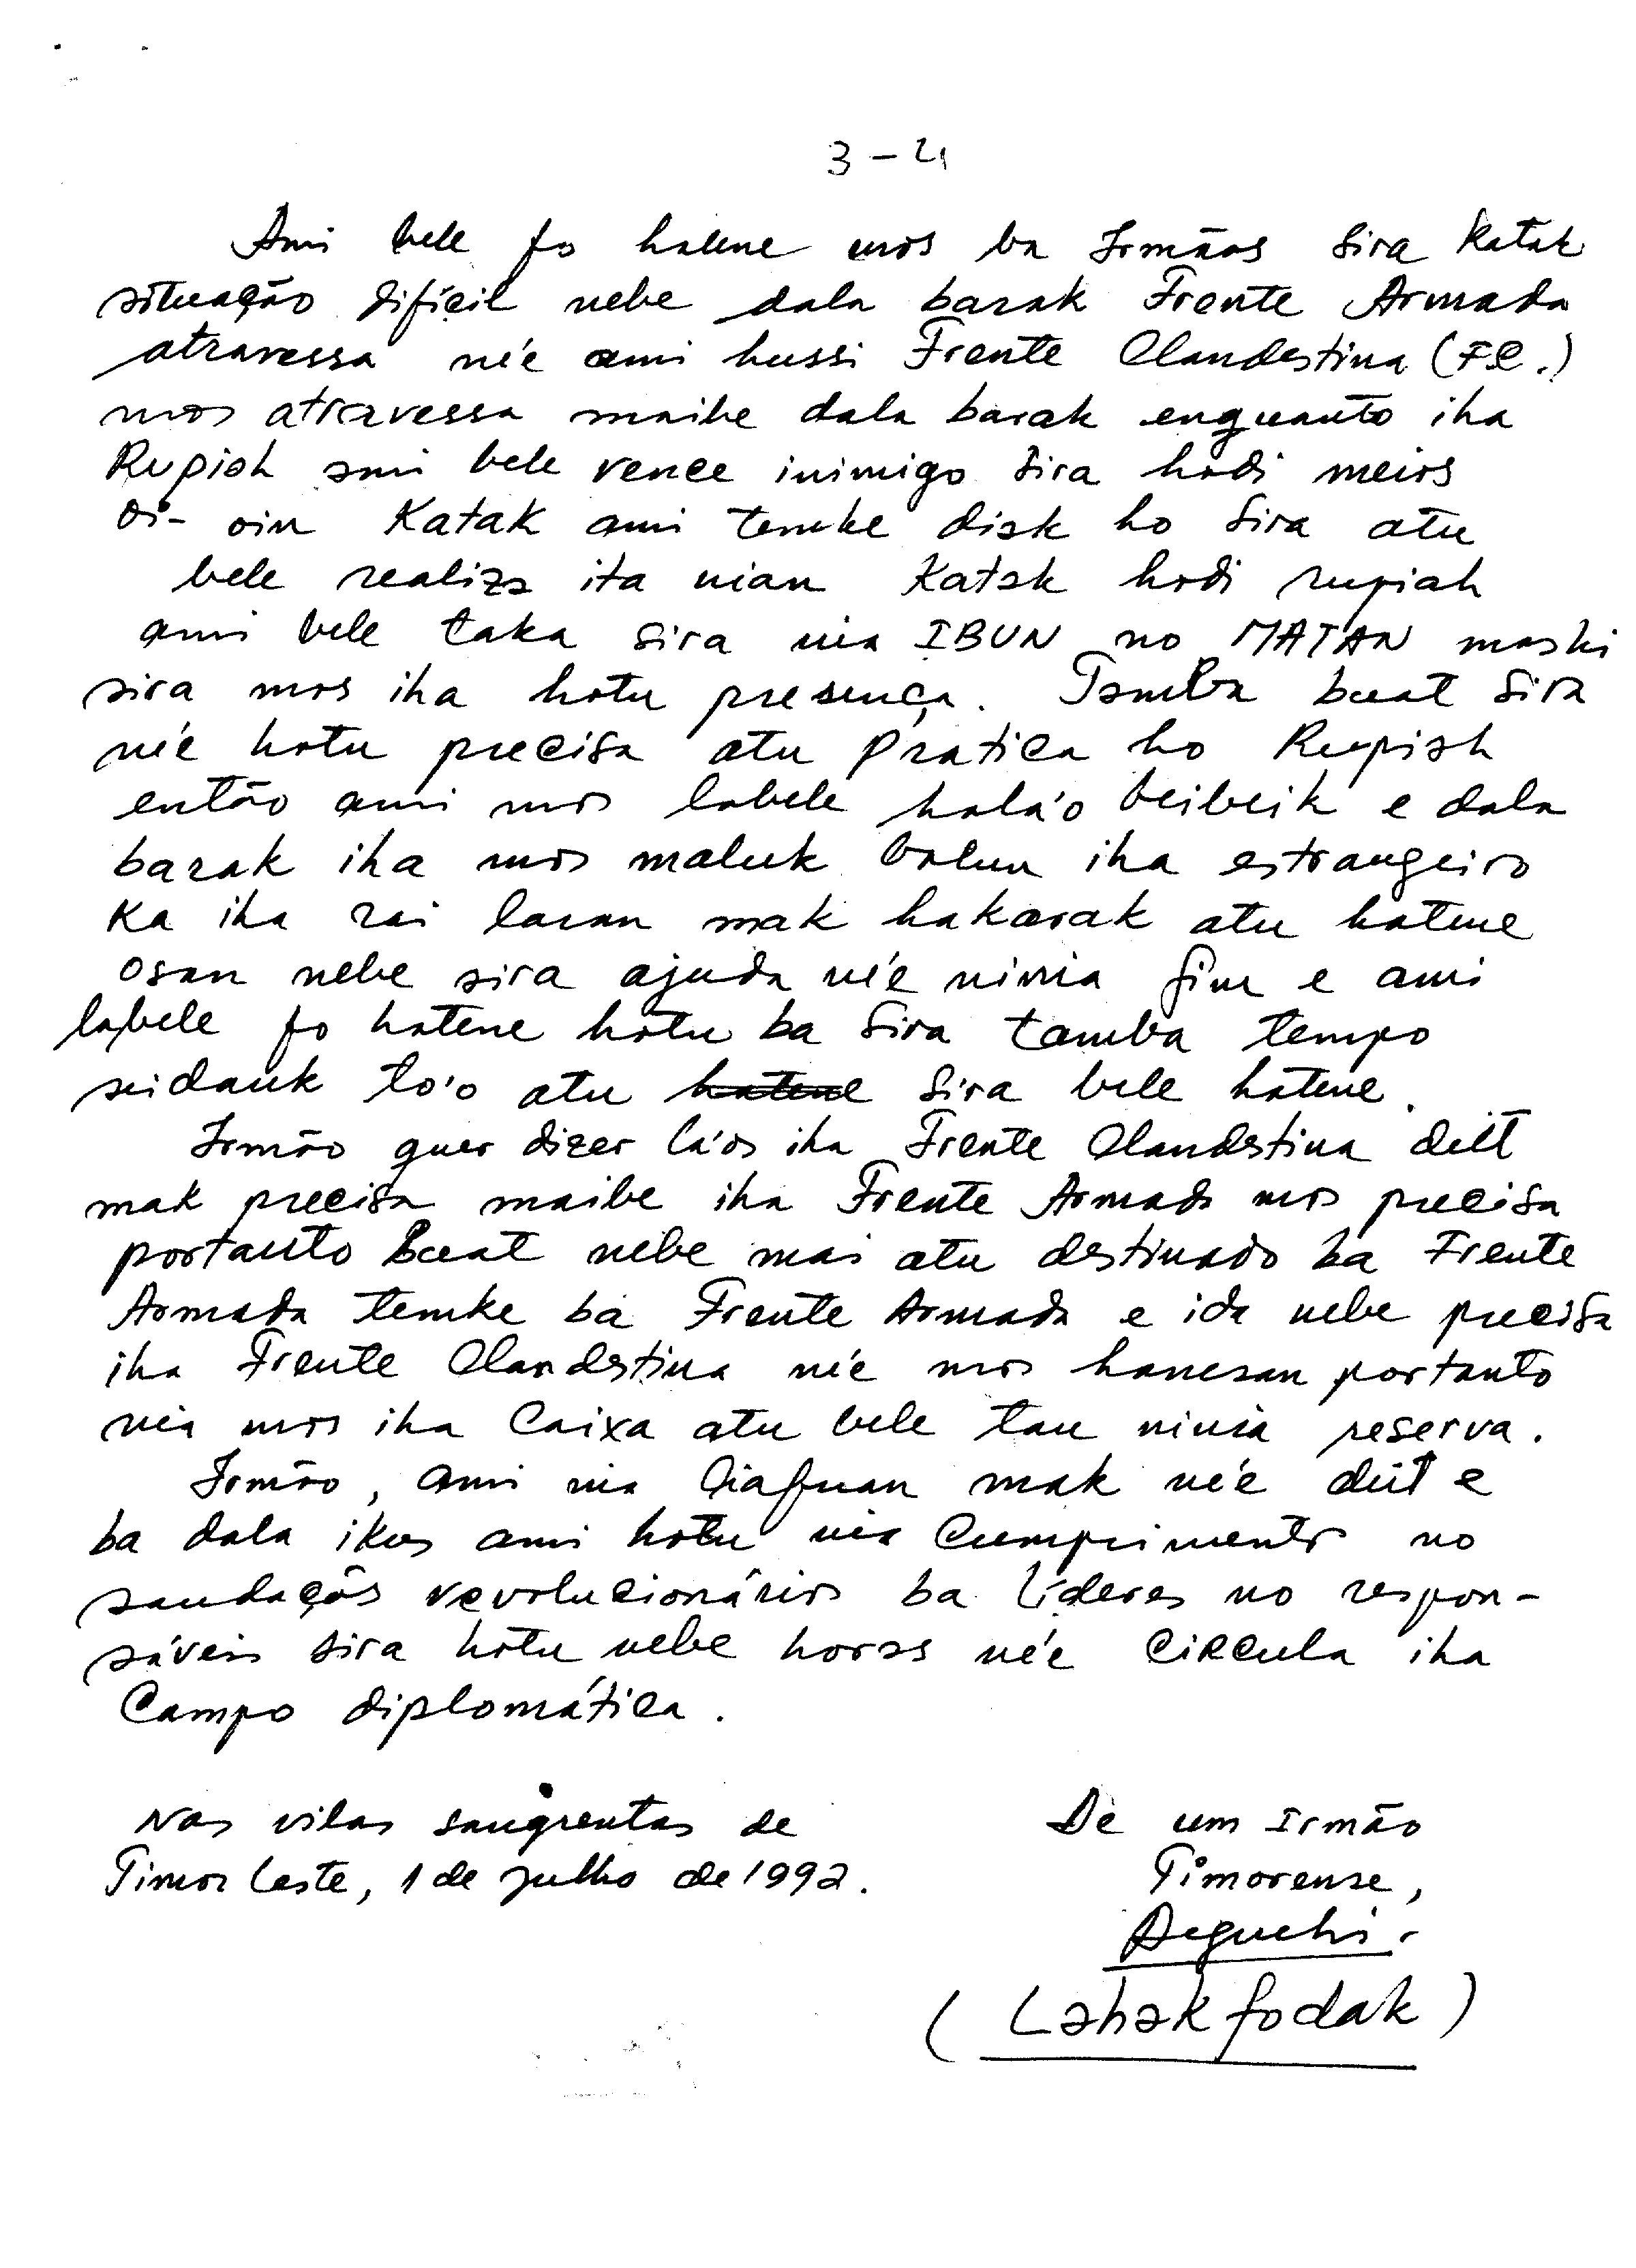 3-4
Ami bele fo hatene mos ba Irmãos sira katak
situação difícil nebe dala barak Frente Armada
atravessa né'e ami hussi Frente Clandestina (FC.)
mos atravessa maibe dala barak enquanto iha
Rupiah ami bele vence inimigo sira hodi meios
oi-oin katak ami temke disk ho sira atu
bele realiza ita nian katak hodi rupiah
ami bele taka sira nia IBUN no MATAN maski
sira mos iha hotu presença. Tamba buat sira
né'e hotu precisa atu pratica ho Rupiah
então ami mos labele hala'o beibeik e dala
barak iha mos maluk balun iha estrangeiro
ka iha rai laran mak hakarak atu hatene
osan nebe sira ajuda né'e ninia fim e ami
labele fo hatene hotu ba sira tamba tempo
seidauk to'o atu hatene sira bele hatene.
Irmão quer dizer la'os iha Frente Clandestina deit
mak precisa maibe iha Frente Armada mos precisa
portanto buat nebe mai atu destinado ba Frente
Armada temke ba Frente Armada e ida nebe precisa
iha Frente Clandestina né'e mos hanesan portanto
nia mos iha Caixa atu bele tau ninia reserva.
Irmão, ami nia liafuan mak né'e deit e
ba dala ikus ami hotu nia cumprimento no
saudaçõs revolucionários ba líderes no respon-
sáveis sira hotu nebe horas né'e circula iha
Campo diplomática.
Nas vilas sangrentas de
Timor Leste, 1 de julho de 1992.
De um Irmão
Timorense,
Deguchi.
(Lahak fodak)